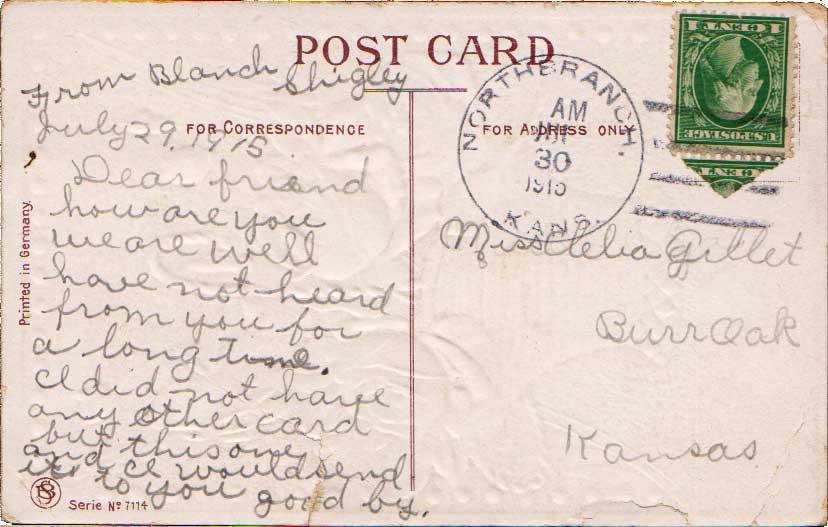 POST CARD
From Blanch Shigley
July 29, 1915
FOR CORRESPONDENCE
Dear friend
how are you
we are well
have not heard
from you for
a long time.
I did not have
any other card
but this one
and I would send
it to you good by.
Printed in Germany
Serie No 7114
FOR ADDRESS ONLY
NORTHBRANCH.
AM
30
1915
KANS.
1 CENT 1
U.S. POSTAGE
Miss Clelia Gillet
Burr Oak
Kansas